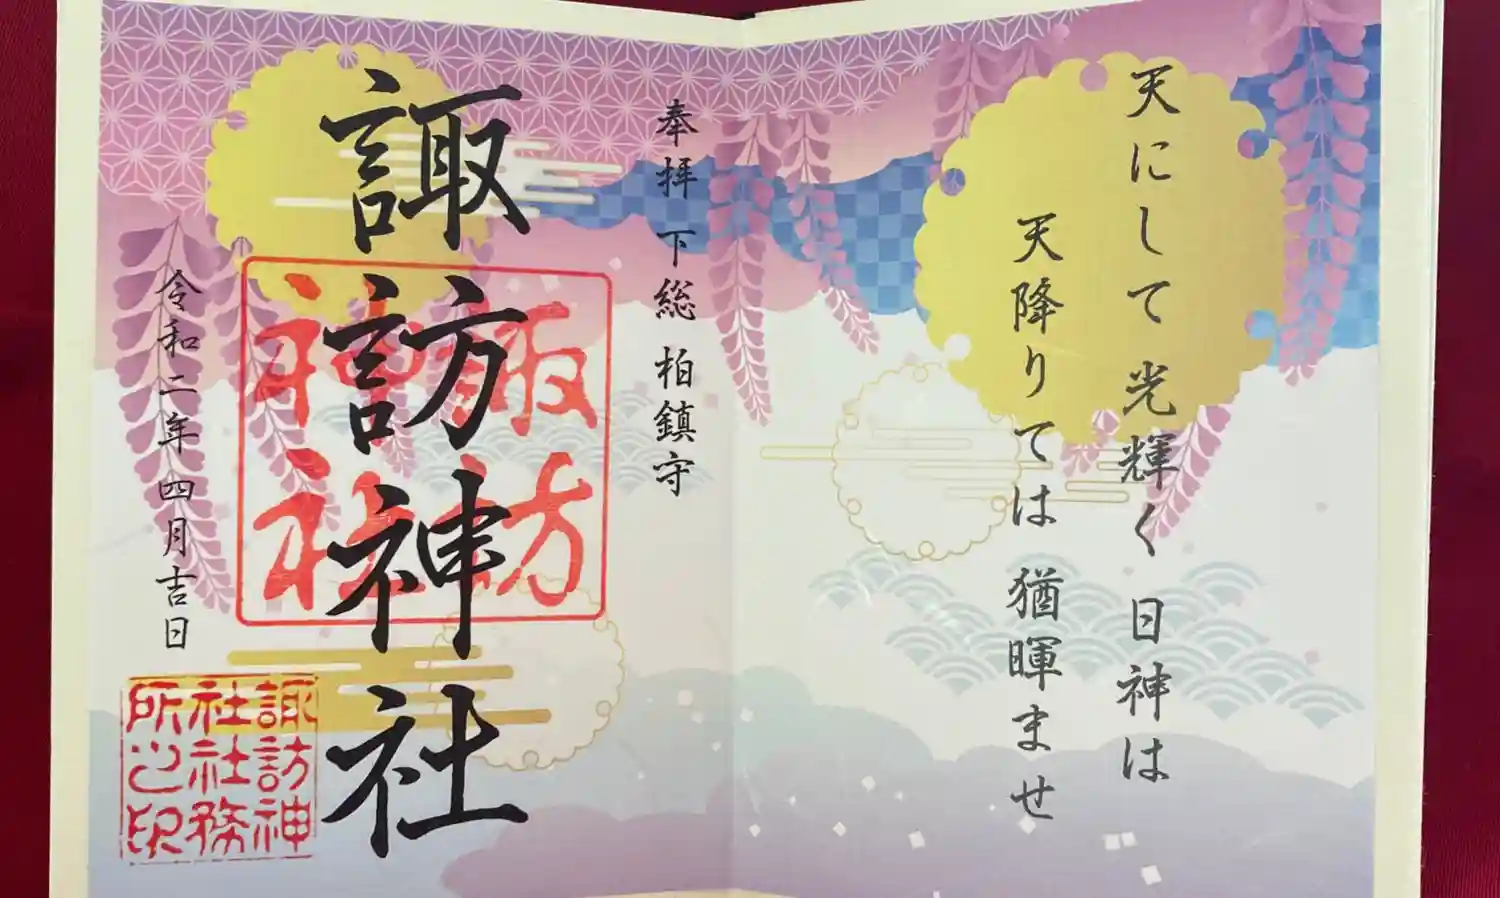 天にして 光輝く 日神は
天降りては 猶暉ませ
奉拝 下総 柏鎮守
諏訪神社
諏訪
神社
令和二年四月吉日
諏訪神
社社務
所之印